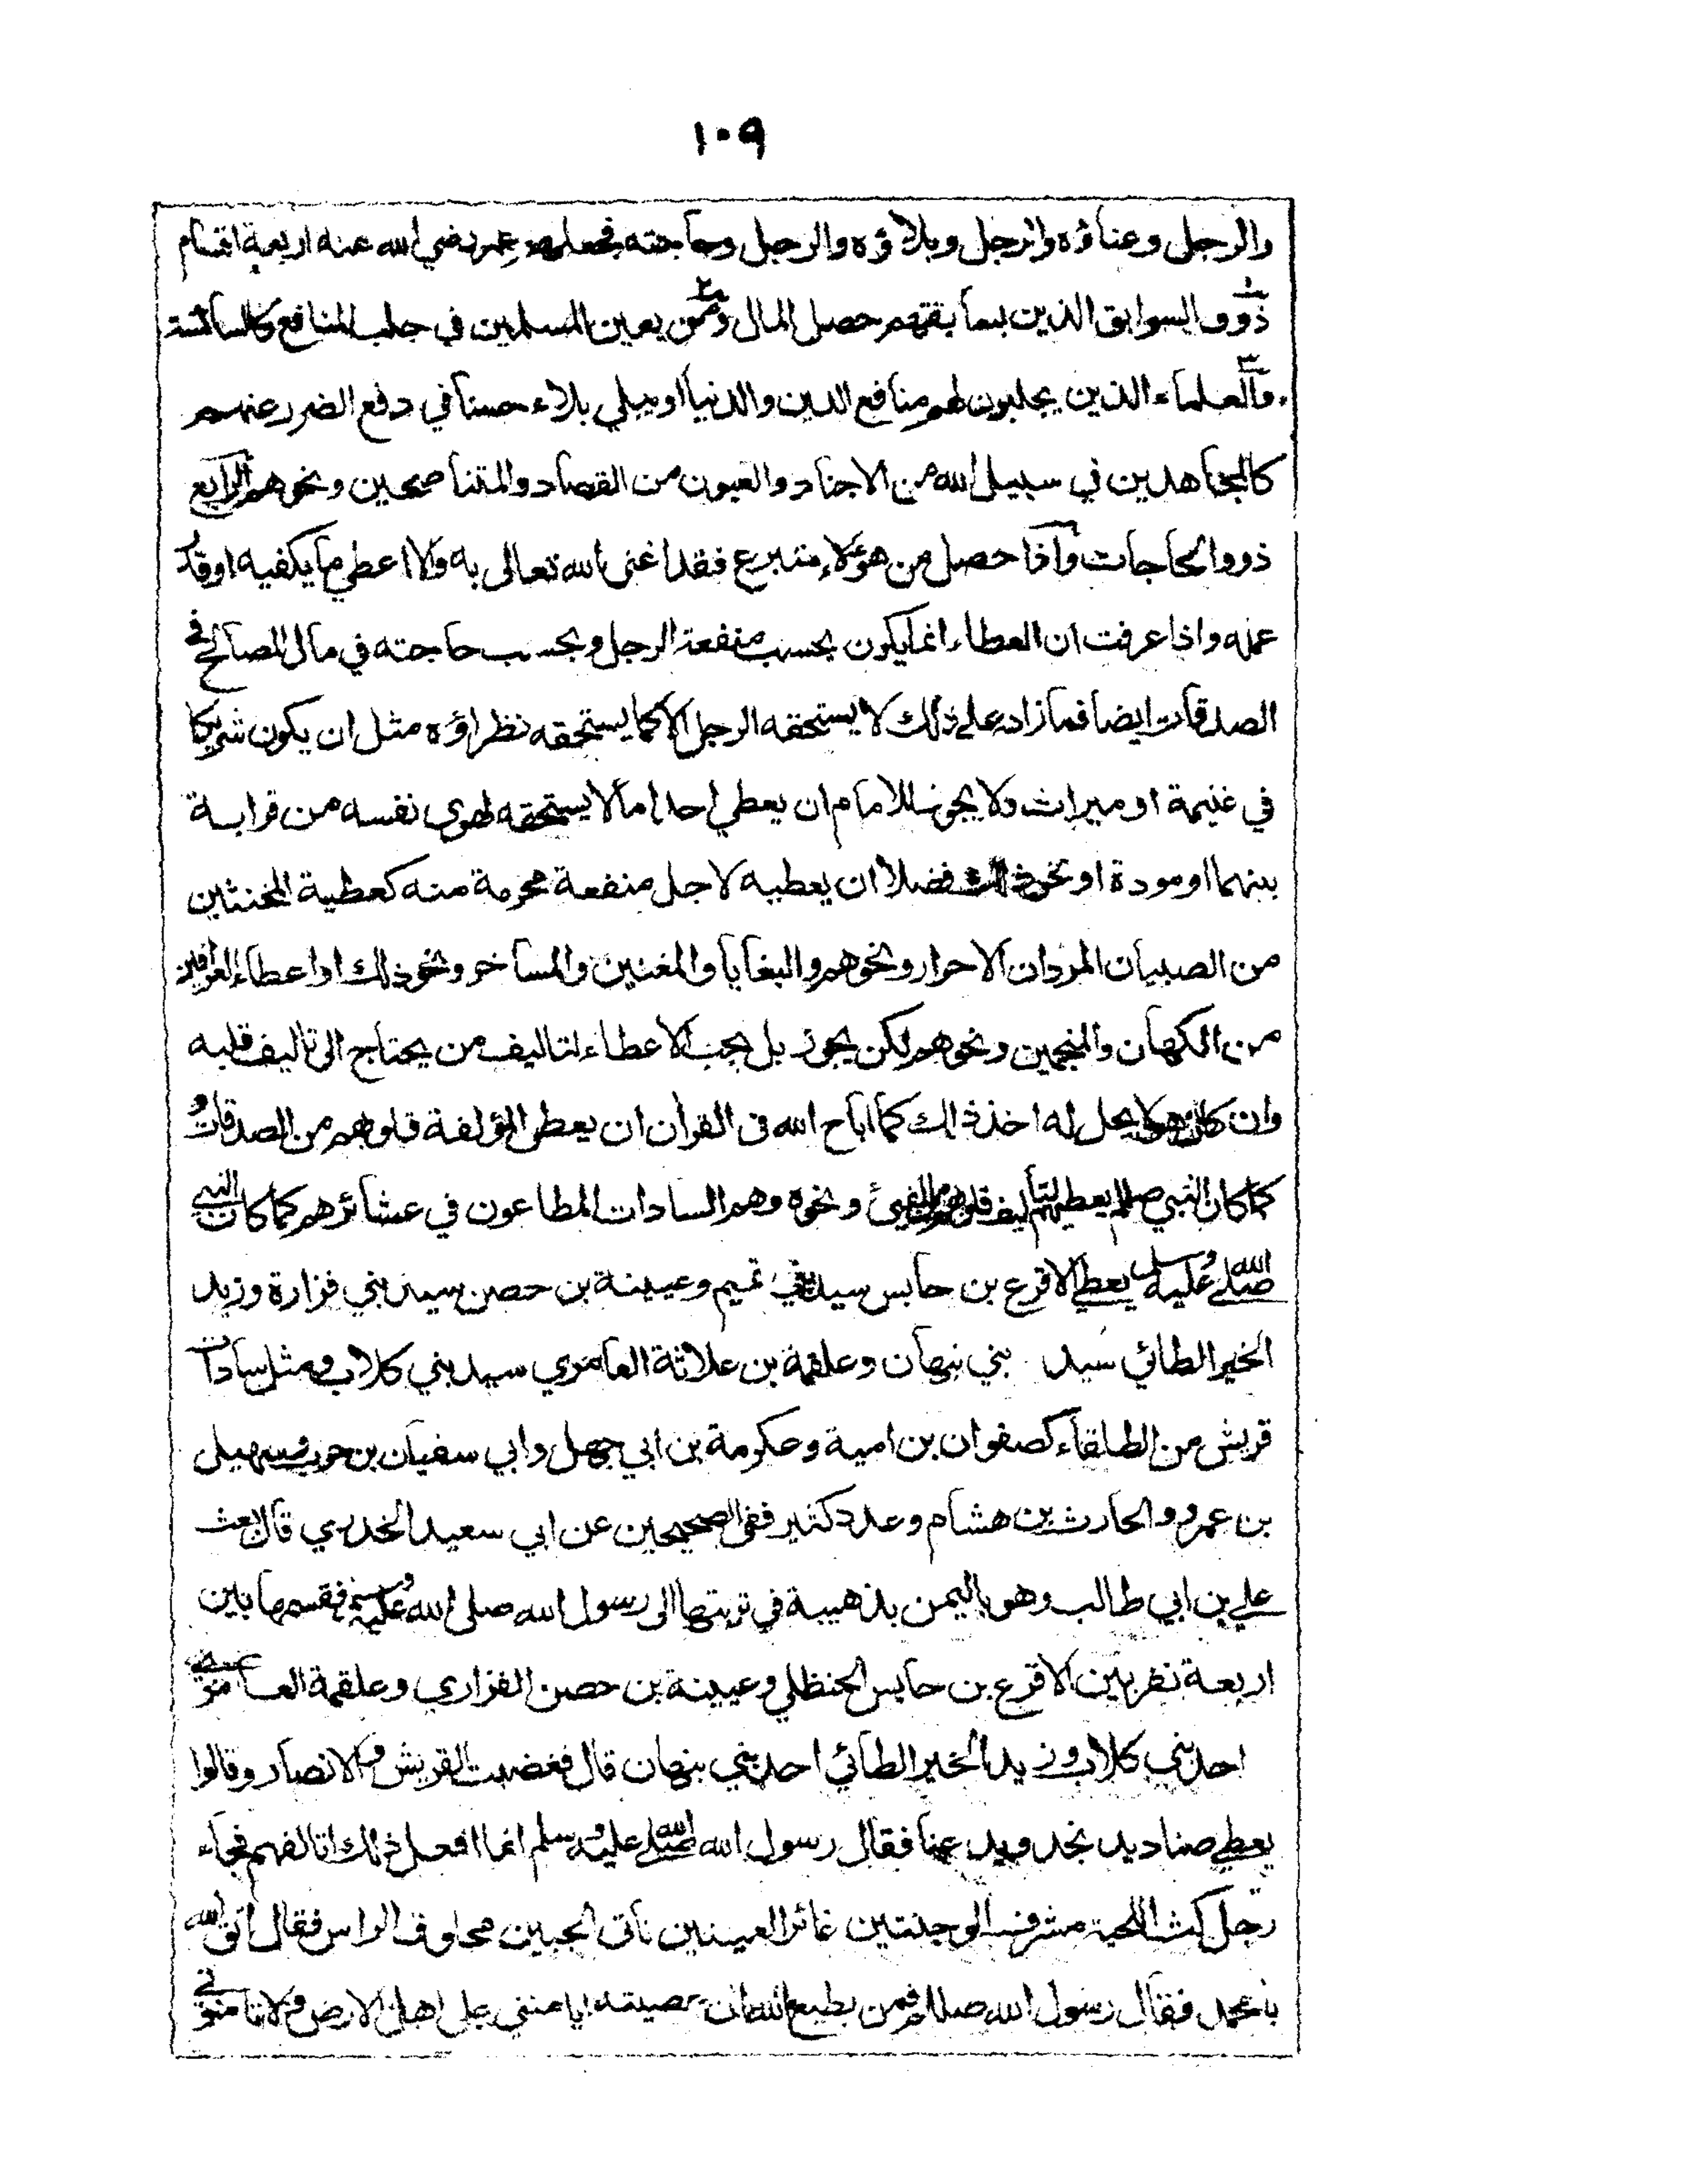 ١٠٩
والرجل وعناؤه والرجل وبلاؤه والرجل وحاجته فجعلهم عمر رضي الله عنه اربعة اقسام
ذوو السوابق الذين بسابقتهم حصل المال ومن يعين المسلمين في جلب المنافع كالساسة
والعلماء الذين يجلبون لهم منافع الدين والدنيا او يبلي بلاء حسنا في دفع الضرر عنهم
كالمجاهدين في سبيل الله من الاجناد والعيون من القصاد والمتناصحين ونحوهم الرابع
ذووا الحاجات واذا حصل من هؤلاء متبرع فقد اغنى الله تعالى به والا اعطي ما يكفيه او قدر
عمله واذا عرفت ان العطاء انما يكون بحسب منفعة الرجل وبحسب حاجته في مال المصالح وفي
الصدقات ايضا فما زاد على ذلك لا يستحقه الرجل الا كما يستحقه نظراؤه مثل ان يكون شريكا
في غنيمة او ميراث ولا يجوز للامام ان يعطي احدا ما لا يستحقه لهوى نفسه من قرابة
بينهما او مودة او نحو ذلك فضلا ان يعطيه لاجل منفعة محرمة منه كعطية المخنثين
من الصبيان المردان الاحرار ونحوهم والبغايا والمغنين والمساخر ونحو ذلك او اعطاء العرافين
من الكهان والمنجمين ونحوهم لكن يجوز بل يجب الاعطاء لتاليف من يحتاج الى تاليف قلبه
وان كان هو لا يحل له اخذ ذلك كما اباح الله في القرآن ان يعطى المؤلفة قلوبهم من الصدقات و
كما كان النبي صلعم يعطيهم لتأليف قلوبهم من الفيئ ونحوه وهم السادات المطاعون في عشائرهم كما كان النبي
صلى الله عليه وسلم يعطي الاقرع بن حابس سيد بني تميم وعيينة بن حصن سيد بني فزارة وزيد
الخير الطائي سيد بني نبهان وعلقمة بن علاثة العامري سيد بني كلاب ومثل سادات
قريش من الطلقاء كصفوان بن امية وعكرمة بن ابي جهل وابي سفيان بن حرب وسهيل
بن عمرو والحارث بن هشام وعدد كثير ففي الصحيحين عن ابي سعيد الخدري قال بعث
علي بن ابي طالب وهو باليمن بذهيبة في تربتها الى رسول الله صلى الله عليه وسلم فقسمها بين
اربعة نفر بين الاقرع بن حابس الحنظلي وعيينة بن حصن الفزاري وعلقمة العامري
احد بني كلاب وزيد الخير الطائي احد بني بنهان قال فغضبت القريش والانصار وقالوا
يعطي صناديد نجد ويدعنا فقال رسول الله صلى الله عليه وسلم انما افعل ذلك اتالفهم فجاء
رجل كث اللحية مشرف الوجنتين غائر العينين ناتى الجبين محلوق الراس فقال اتق الله
يا محمد فقال رسول الله صلعم فمن يطيع الله ان عصيته ايامنني على اهل الارض ولا تامنوني